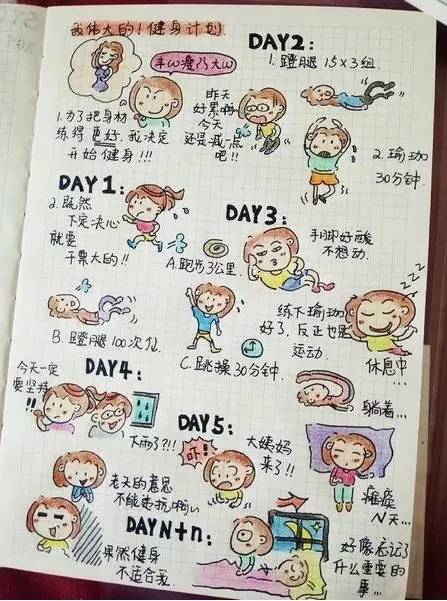 我伟大的!健身计划
1.为了把身材
练得更好,我决定
开始健身!!!
DAY1:
2.既然
下定决心
就要
干票大的!!
A.跑步3公里.
B.蹬腿100次位
C.跳操30分钟.
DAY2:
1.蹬腿15×3组.
昨天
好累啊
今天
还是减一点
吧!!
2.瑜珈
30分钟.
DAY3:
手脚好酸
不想动.
练下瑜珈
好了,反正也是
运动.
zzz
休息中...
躺着...
DAY4:
今天一定
要坚持!!
下雨了?!!
老天的意思
不能违抗啊
DAY5:
吓!
大姨妈
来了!!
瘫痪
N天...
DAYN+n:
果然健身
不适合我.
好像忘记了
什么重要的
事...